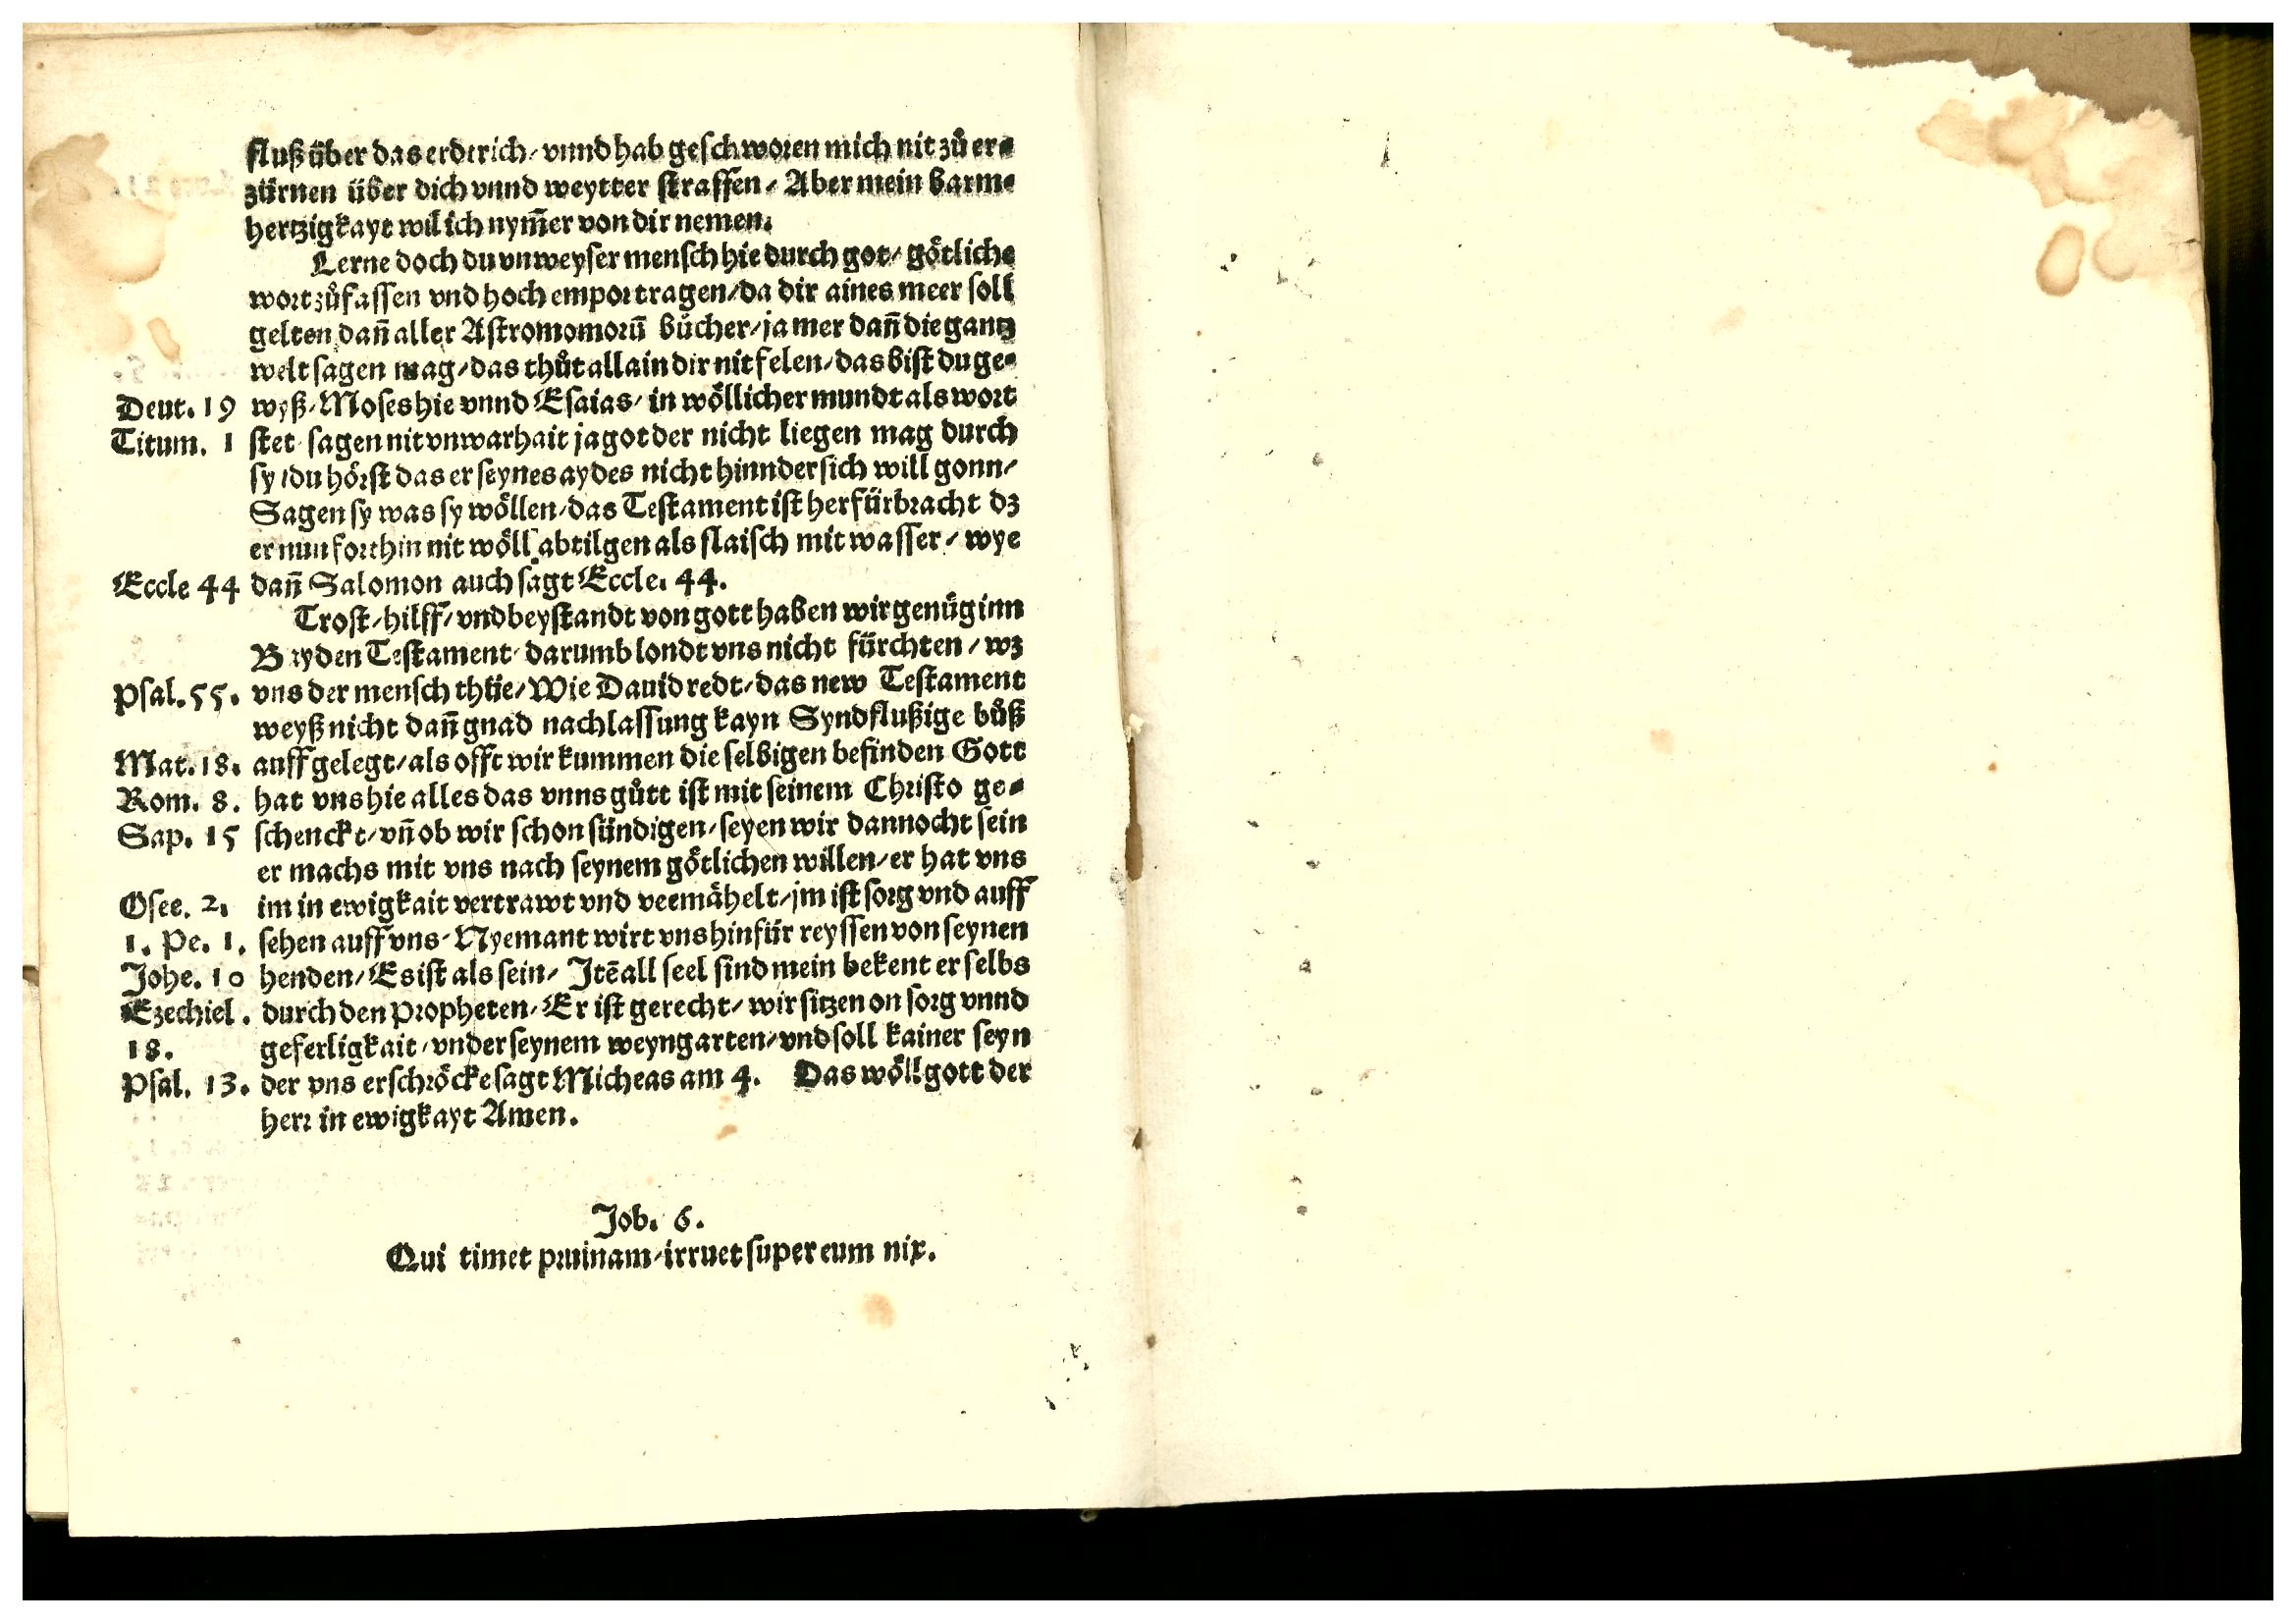 fluß über das erdtrich / vnnd hab geschworen mich nit zů er⸗
zürnen über dich vnnd weytter straffen / Aber mein barm⸗
hertzigkayt wil ich nym̃er von dir nemen.
Lerne doch du vnweyser mensch hie durch got / götliche
wort zůfassen vnd hoch empor tragen / da dir aines meer soll
gelten dañ aller Astromomorū bücher / ja mer dañ die gantz
welt sagen mag / das thůt allain dir nit felen / das bist du ge⸗
Deut. 19 wyß / Moses hie vnnd Esaias / in wöllicher mundt als wort
Titum. 1 stet sagen nit vnwarhait ja got der nicht liegen mag durch
sy / du hörst das er seynes aydes nicht hinndersich will gonn /
Sagen sy was sy wöllen / das Testament ist herfürbracht dz
er nun forthin nit wöll abtilgen als flaisch mit wasser / wye
Eccle 44 dañ Salomon auch sagt Eccle. 44.
Trost / hilff / vnd beystandt von gott haben wir genůg inn
Bayden Testament / darumb londt vns nicht fürchten / wz
Psal. 55. vns der mensch thüe / Wie Dauid redt / das new Testament
weyß nicht dañ gnad nachlassung kayn Syndflußige bůß
Mat. 18. auff gelegt / als offt wir kummen die selbigen befinden Gott
Rom. 8. hat vns hie alles das vnns gůtt ist mit seinem Christo ge⸗
Sap. 15 schenckt / vñ ob wir schon sündigen / seyen wir dannocht sein
er machs mit vns nach seynem götlichen willen / er hat vns
Osee. 2. im in ewigkait vertrawt vnd veemähelt / jm ist sorg vnd auff
1. Pe. 1. sehen auff vns / Nyemant wirt vns hinfür reyssen von seynen
Johe. 10 henden / Es ist als sein / Itē all seel sind mein bekent er selbs
Ezechiel. durch den Propheten / Er ist gerecht / wir sitzen on sorg vnnd
18. geferligkait / vnder seynem weyngarten / vnd soll kainer seyn
Psal. 13. der vns erschröcke sagt Micheas am 4. Das wöll gott der
herr in ewigkayt Amen.
Job. 6.
Qui timet pruinam / irruet super eum nix.